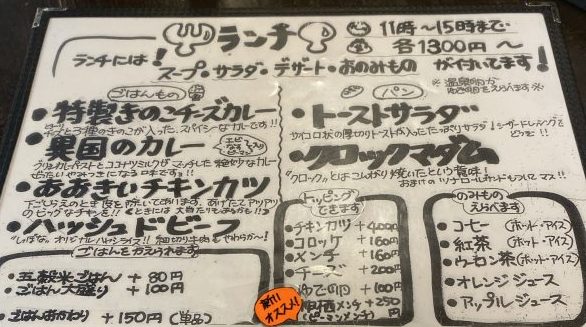 ランチ
11時〜15時まで
各1300円〜
ランチには!
スープ・サラダ・デザート・おのみもの が付いてます!
※温泉卵か
ごはんもの
・特製きのこチーズカレー
3種のきのこが入った、スパイシーなカレーです!!
・異国のカレー
グリーンカレーペーストとココナツミルクがマッチした絶妙なカレー
・おおきいチキンカツ
のビッグなチキンを!!
・ハッシュドビーフ
ごはんをかえられます
・五穀米ごはん +80円
・ごはん大盛り +100円
・ごはんおかわり +150円(単品)
パン
・トーストサラダ
サイコロ状の厚切りトーストが入ったたっぷりサラダ!シーザードレッシングで
どうぞ!!
・クロックマダム
"クロック"とはこんがり焼いたという意味!
トッピング
できます
・チキンカツ +400円
・コロッケ +160円
・メンチ +160円
・チーズ +200円
・ゆで卵 +100円
メンチ +250円
(ピーマンメンチ)
新!!
オススメ!!
のみもの
えらべます
・コーヒー (ホット・アイス)
・紅茶 (ホット・アイス)
・ウーロン茶 (ホット・アイス)
・オレンジジュース
・アップルジュース